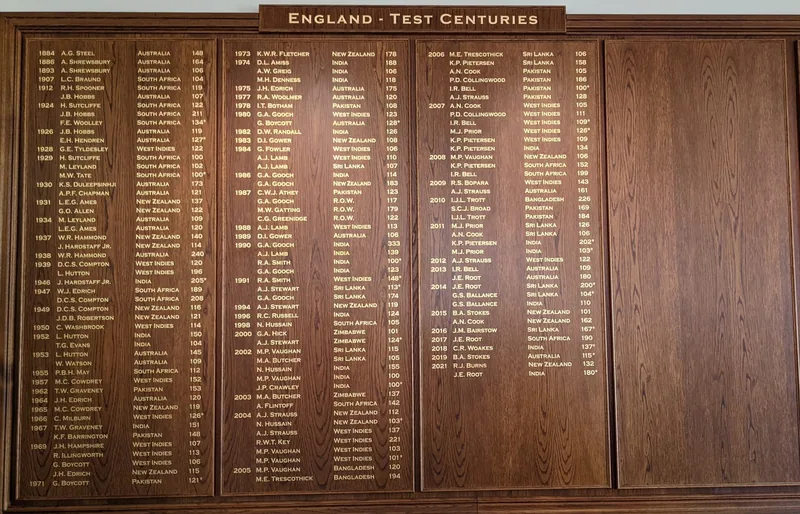 England - Test Centuries
1884 A.G. Steel Australia 148
1886 A. Shrewsbury Australia 164
1893 A. Shrewsbury Australia 106
1907 L.C. Braund South Africa 104
1912 R.H. Spooner South Africa 119
J.B. Hobbs Australia 107
1924 H. Sutcliffe South Africa 122
J.B. Hobbs South Africa 211
F.E. Woolley South Africa 134*
1926 J.B. Hobbs Australia 119
E.H. Hendren Australia 127*
1928 G.E. Tyldesley West Indies 122
1929 H. Sutcliffe South Africa 100
M. Leyland South Africa 102
M.W. Tate South Africa 100*
1930 K.S. Duleepsinhji Australia 173
A.P.F. Chapman Australia 121
1931 L.E.G. Ames New Zealand 137
G.O. Allen New Zealand 122
1934 M. Leyland Australia 109
L.E.G. Ames Australia 120
1937 W.R. Hammond New Zealand 140
J. Hardstaff Jr. New Zealand 114
1938 W.R. Hammond Australia 240
1939 D.C.S. Compton West Indies 120
L. Hutton West Indies 196
1946 J. Hardstaff Jr. India 205*
1947 W.J. Edrich South Africa 189
D.C.S. Compton South Africa 208
1949 D.C.S. Compton New Zealand 116
J.D.B. Robertson New Zealand 121
1950 C. Washbrook West Indies 114
1952 L. Hutton India 150
T.G. Evans India 104
1953 L. Hutton Australia 145
W. Watson Australia 109
1955 P.B.H. May South Africa 112
1957 M.C. Cowdrey West Indies 152
1962 T.W. Graveney Pakistan 153
1964 J.H. Edrich Australia 120
1965 M.C. Cowdrey New Zealand 119
1966 C. Milburn West Indies 126*
1967 T.W. Graveney India 151
K.F. Barrington Pakistan 148
1969 J.H. Hampshire West Indies 107
R. Illingworth West Indies 113
G. Boycott West Indies 106
J.H. Edrich New Zealand 115
1971 G. Boycott Pakistan 121*
1973 K.W.R. Fletcher New Zealand 178
1974 D.L. Amiss India 188
A.W. Greig India 106
M.H. Denness India 118
1975 J.H. Edrich Australia 175
1977 R.A. Woolmer Australia 120
1978 I.T. Botham Pakistan 108
1980 G.A. Gooch West Indies 123
G. Boycott Australia 128*
1982 D.W. Randall India 126
1983 D.I. Gower New Zealand 108
1984 G. Fowler West Indies 106
A.J. Lamb West Indies 110
A.J. Lamb Sri Lanka 107
1986 G.A. Gooch India 114
G.A. Gooch New Zealand 183
1987 C.W.J. Athey Pakistan 123
G.A. Gooch R.O.W. 117
M.W. Gatting R.O.W. 179
C.G. Greenidge R.O.W. 122
1988 A.J. Lamb West Indies 113
1989 D.I. Gower Australia 106
1990 G.A. Gooch India 333
A.J. Lamb India 139
R.A. Smith India 100*
G.A. Gooch India 123
1991 R.A. Smith West Indies 148*
A.J. Stewart Sri Lanka 113*
G.A. Gooch Sri Lanka 174
1994 A.J. Stewart New Zealand 119
1996 R.C. Russell India 124
1998 N. Hussain South Africa 105
2000 G.A. Hick Zimbabwe 101
A.J. Stewart Zimbabwe 124*
2002 M.P. Vaughan Sri Lanka 115
M.A. Butcher Sri Lanka 105
N. Hussain India 155
M.P. Vaughan India 100
J.P. Crawley India 100*
2003 M.A. Butcher Zimbabwe 137
A. Flintoff South Africa 142
2004 A.J. Strauss New Zealand 112
N. Hussain New Zealand 103*
A.J. Strauss West Indies 137
R.W.T. Key West Indies 221
M.P. Vaughan West Indies 103
M.P. Vaughan West Indies 101*
2005 M.P. Vaughan Bangladesh 120
M.E. Trescothick Bangladesh 194
2006 M.E. Trescothick Sri Lanka 106
K.P. Pietersen Sri Lanka 158
A.N. Cook Pakistan 105
P.D. Collingwood Pakistan 186
I.R. Bell Pakistan 100*
A.J. Strauss Pakistan 128
2007 A.N. Cook West Indies 105
P.D. Collingwood West Indies 111
I.R. Bell West Indies 109*
M.J. Prior West Indies 126*
K.P. Pietersen West Indies 109
K.P. Pietersen India 134
2008 M.P. Vaughan New Zealand 106
K.P. Pietersen South Africa 152
I.R. Bell South Africa 199
2009 R.S. Bopara West Indies 143
A.J. Strauss Australia 161
2010 I.J.L. Trott Bangladesh 226
S.C.J. Broad Pakistan 169
I.J.L. Trott Pakistan 184
2011 M.J. Prior Sri Lanka 126
A.N. Cook Sri Lanka 106
K.P. Pietersen India 202*
M.J. Prior India 103*
2012 A.J. Strauss West Indies 122
2013 I.R. Bell Australia 109
J.E. Root Australia 180
2014 J.E. Root Sri Lanka 200*
G.S. Ballance Sri Lanka 104*
G.S. Ballance India 110
2015 B.A. Stokes New Zealand 101
A.N. Cook New Zealand 162
2016 J.M. Bairstow Sri Lanka 167*
2017 J.E. Root South Africa 190
2018 C.R. Woakes India 137*
2019 B.A. Stokes Australia 115*
2021 R.J. Burns New Zealand 132
J.E. Root India 180*